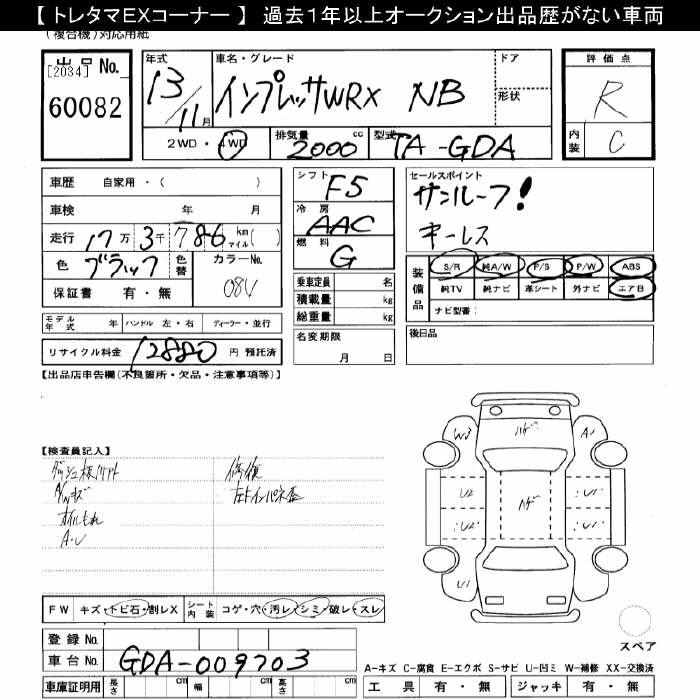 【 トレタマEXコーナー 】 過去1年以上オークション出品歴がない車両
(複合機)対応用紙
出品 [2034] No.
60082
年式 13/11月
車名・グレード インプレッサWRX NB
ドア
形状
2WD・4WD
排気量 2000 cc
型式 TA-GDA
評価点 R
内装 C
車歴 自家用・( )
車検 年 月
走行 17万3千786 km マイル( )
色 ブラック 色替 カラーNo. 08V
保証書 有・無
シフト F5
冷房 AAC
燃料 G
乗車定員 名
積載量 kg
総重量 kg
セールスポイント
サンルーフ!
キーレス
装備品 S/R 純A/W P/S P/W ABS
純TV 純ナビ 革シート 外ナビ エアB
ナビ型番:
モデル年式 年 ハンドル 左・右 ディーラー・並行
リサイクル料金 12880 円 預託済
名変期限 月 日
後日品
【出品店申告欄(不良箇所・欠品・注意事項等)】
【検査員記入】
A/Wキズ
オイルもれ
A・U
修復
W3 ハゲ A1
U2 ハゲ U1
U2 U1
U1
FW キズ・トビ石・割レX シート内装 コゲ・穴・汚レ・シミ・破レ・スレ
登録 No.
車台 No. GDA-009703
車庫証明用 長さ cm 幅 cm 高さ cm
スペア
A-キズ C-腐食 E-エクボ S-サビ U-凹ミ W-補修 XX-交換済
工具 有・無 ジャッキ 有・無